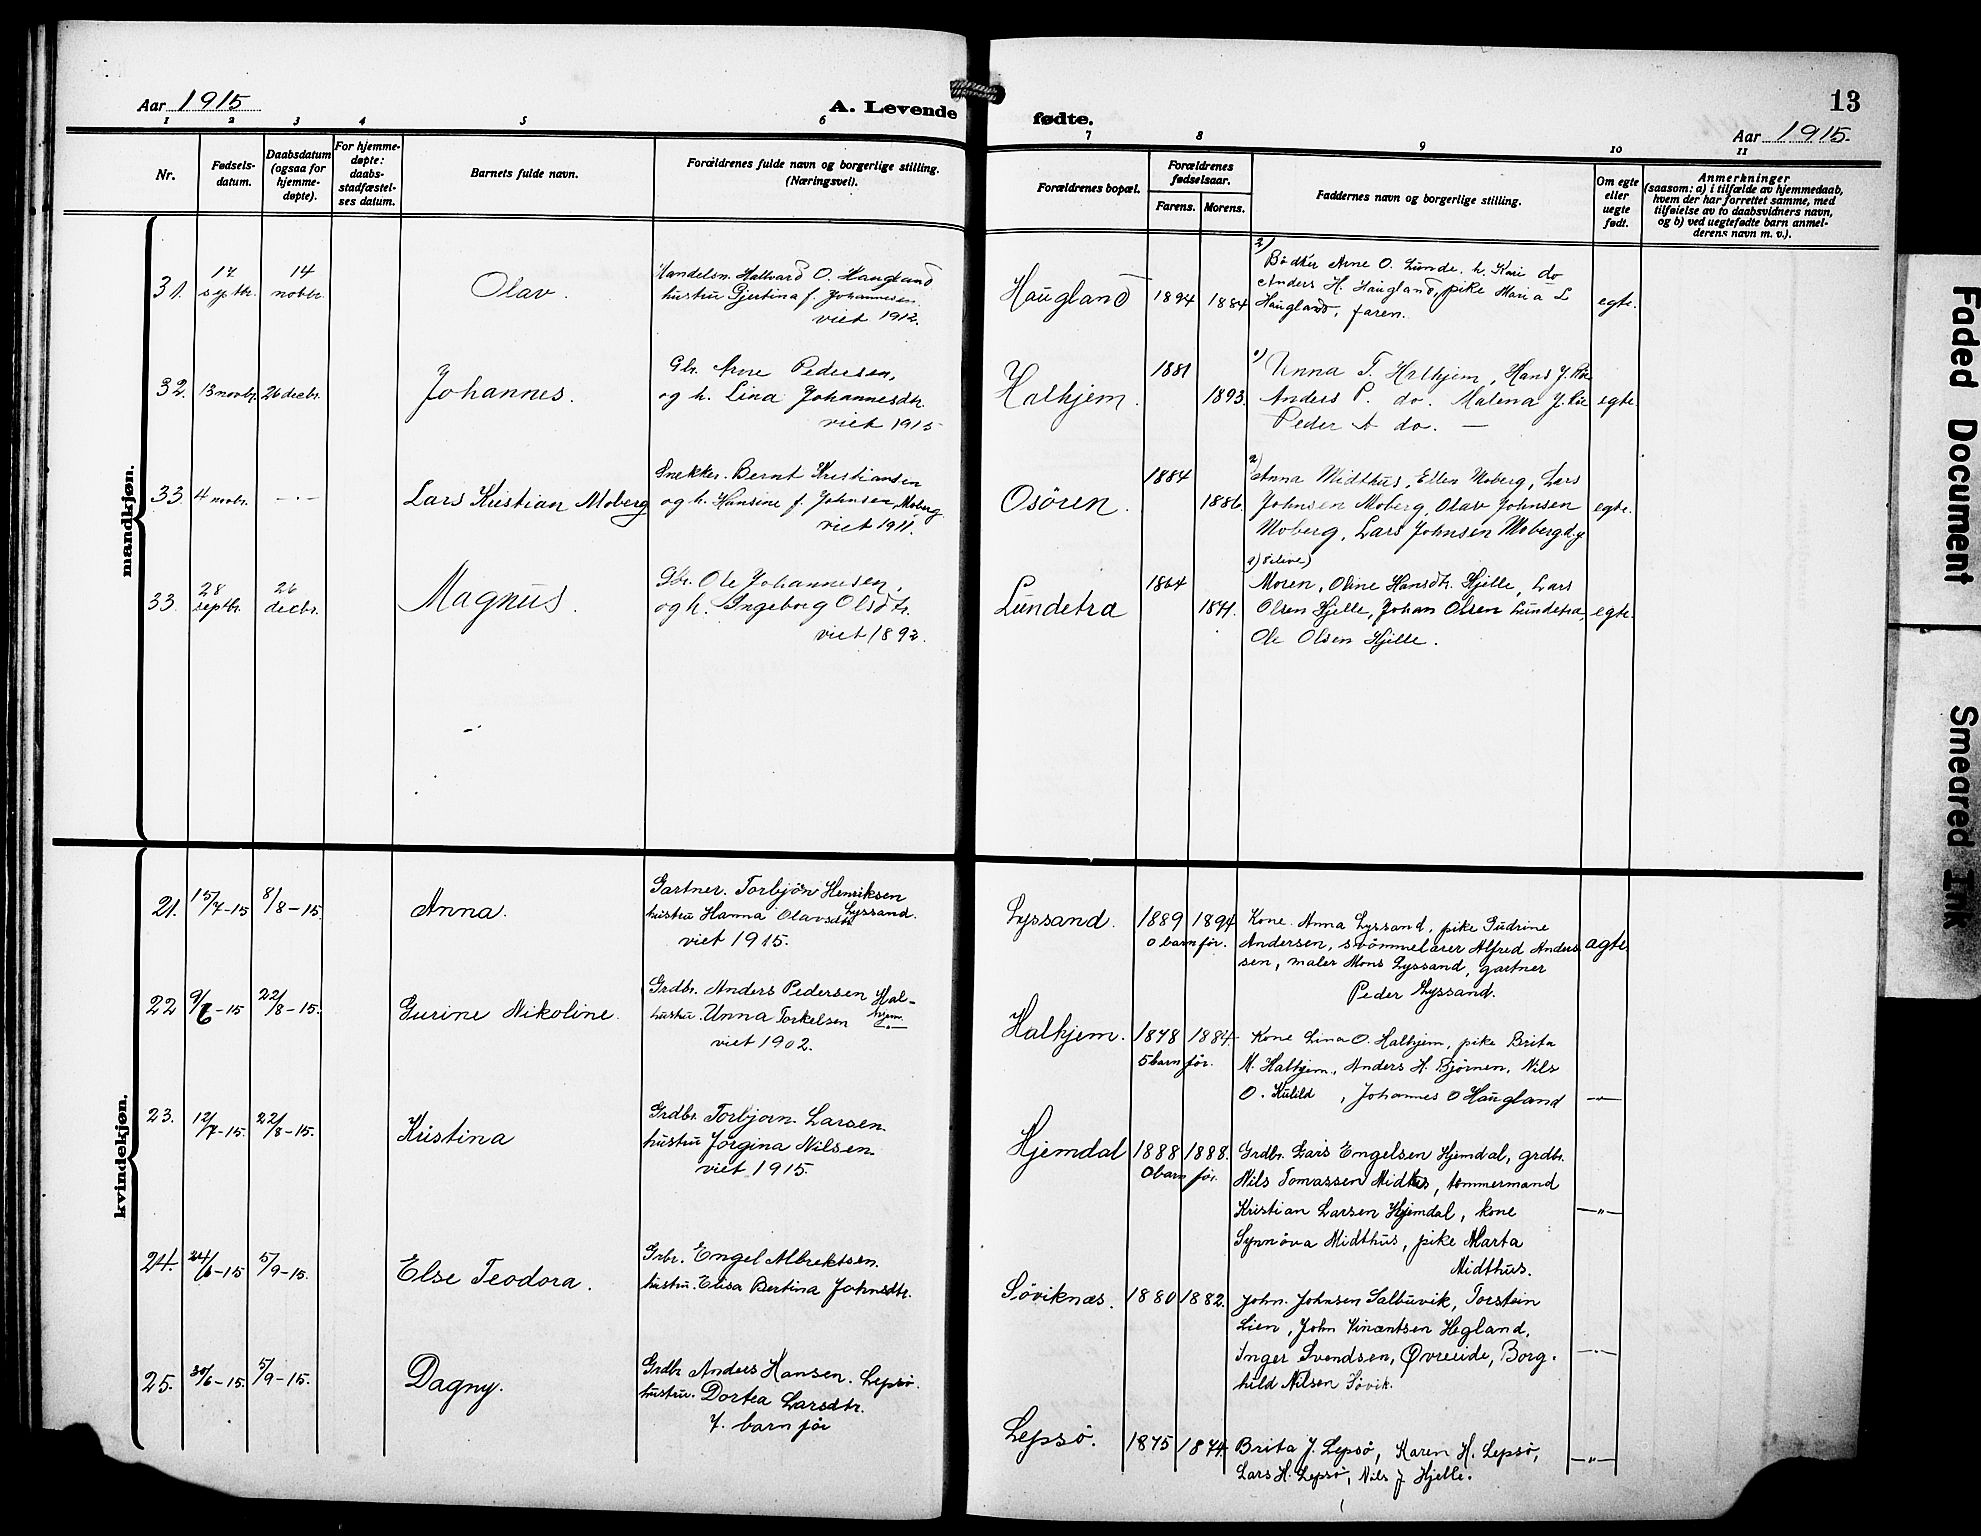 Aar 1915
A. Levende
1 2 3 4 5 6
Nr.
Fødsels-
datum.
Daabsdatum
(ogsaa for
hjemme-
døpte).
For hjemme-
døpte:
daabs-
stadfæstel-
ses datum.
Barnets fulde navn.
Forældrenes fulde navn og borgerlige stilling.
(Næringsvei).
mandkjøn.
31.
17
septbr.
14
novbr.
Olav.
Handelsm. Hallvard O. Haugland
hustru Gjertina f. Johannesen.
viet 1912.
32.
13 novbr.
26 decbr.
Johannes.
Gbr. Arne Pedersen,
og h. Lina Johannesdtr.
viet 1915
33
4 novbr.
— . —
Lars Kristian Moberg
Snekker. Bernt Kristiansen
og h. Hansine f. Johnsen Moberg
viet 1911.
33.
28
septbr.
26
decbr.
Magnus.
Gbr. Ole Johannesen,
og h. Ingeborg Olsdtr.
viet 1892.
kvindekjøn.
21.
15/7-15
8/8-15.
Anna.
Gartner. Torbjörn Henriksen
hustru Hanna Olavsdtr Lyssand.
viet 1915.
22
9/6-15
22/8-15.
Gurine Nikoline.
Grdbr. Anders Pedersen Hal-
hjem.
hustru. Unna Torkelsen —"—
viet 1902.
23.
12/7-15.
22/8-15.
Kristina
Grdbr. Torbjorn Larsen
hustru Jörgina Nilsen.
viet 1915.
24.
24/6-15
5/9-15.
Else Teodora.
Grbr. Engel Albrektsen.
hustru. Elisa Bertina Johnsdtr.
25.
30/6-15.
5/9-15.
Dagny.
Grdbr Anders Hansen. Lepsø.
hustru. Dortea Larsdtr.
7. barn før
13
fødte.
Aar 1915.
7 8 9 10 11
Forældrenes bopæl.
Forældrenes
fødselsaar.
Farens. Morens.
Faddernes navn og borgerlige stilling.
Om egte
eller
uegte
født.
Anmerkninger
(saasom: a) i tilfælde av hjemmedaab,
hvem der har forrettet samme, med
tilføielse av to daabsvidners navn,
og b) ved uegtefødte barn anmel-
derens navn m. v.).
Haugland
1894 1884
Bødker Arne O. Lunde. h. Kari do
Anders H. Haugland, pike Maria L
Haugland, faren.
egte.
Halhjem.
1881
1893.
Unna T. Halhjem, Hans J. Röe
Anders P. do. Malena J. Röe
Peder A do. —
egte
Osören.
1884
1886.
2) Anna Midthus, Ellen Moberg, Lars
Johnsen Moberg, Olav Johnsen
Moberg, Lars Johnsen Moberg d.y
egte.
Lundetra
1864
1871.
Moren, Oline Hansdtr. Hjelle, Lars
Olsen Hjelle, Johan Olsen Lundetra,
Ole Olsen Hjelle.
egte.
Lyssand.
1889 1894
0 barn før.
Kone. Anna Lyssand, pike Gudrine
Andersen, svömmelærer Alfred Anders
sen, maler Mons Lyssand, gartner
Peder Lyssand.
ægte
Halhjem.
1878 1884.
5 barn før.
Kone Lina O. Halhjem, pike Brita
M. Halhjem, Anders H. Bjørnen, Nils
O. Kulild, Johannes O Haugland
—"—
Hjemdal
1888 1888.
0 barn før.
Grdbr. Lars Engelsen Hjemdal, grdbr.
Nils Tomassen Midthus, tømmermand
Kristian Larsen Hjemdal, kone
Synnöva Midthus, pike Marta
Midthus.
—"—
Söviknæs.
1880 1882.
John. Johnsen Salbuvik, Torstein
Lien, John Vincentsen Hegland,
Inger Svendsen, Øvreeide, Borg-
hild Nilsen Søvik.
—"—
Lepsö.
1875 1874.
Brita J. Lepsø, Karen H. Lepsø,
Lars H. Lepsø, Nils J Hjelle.
—"—
Faded Document
Smeared Ink